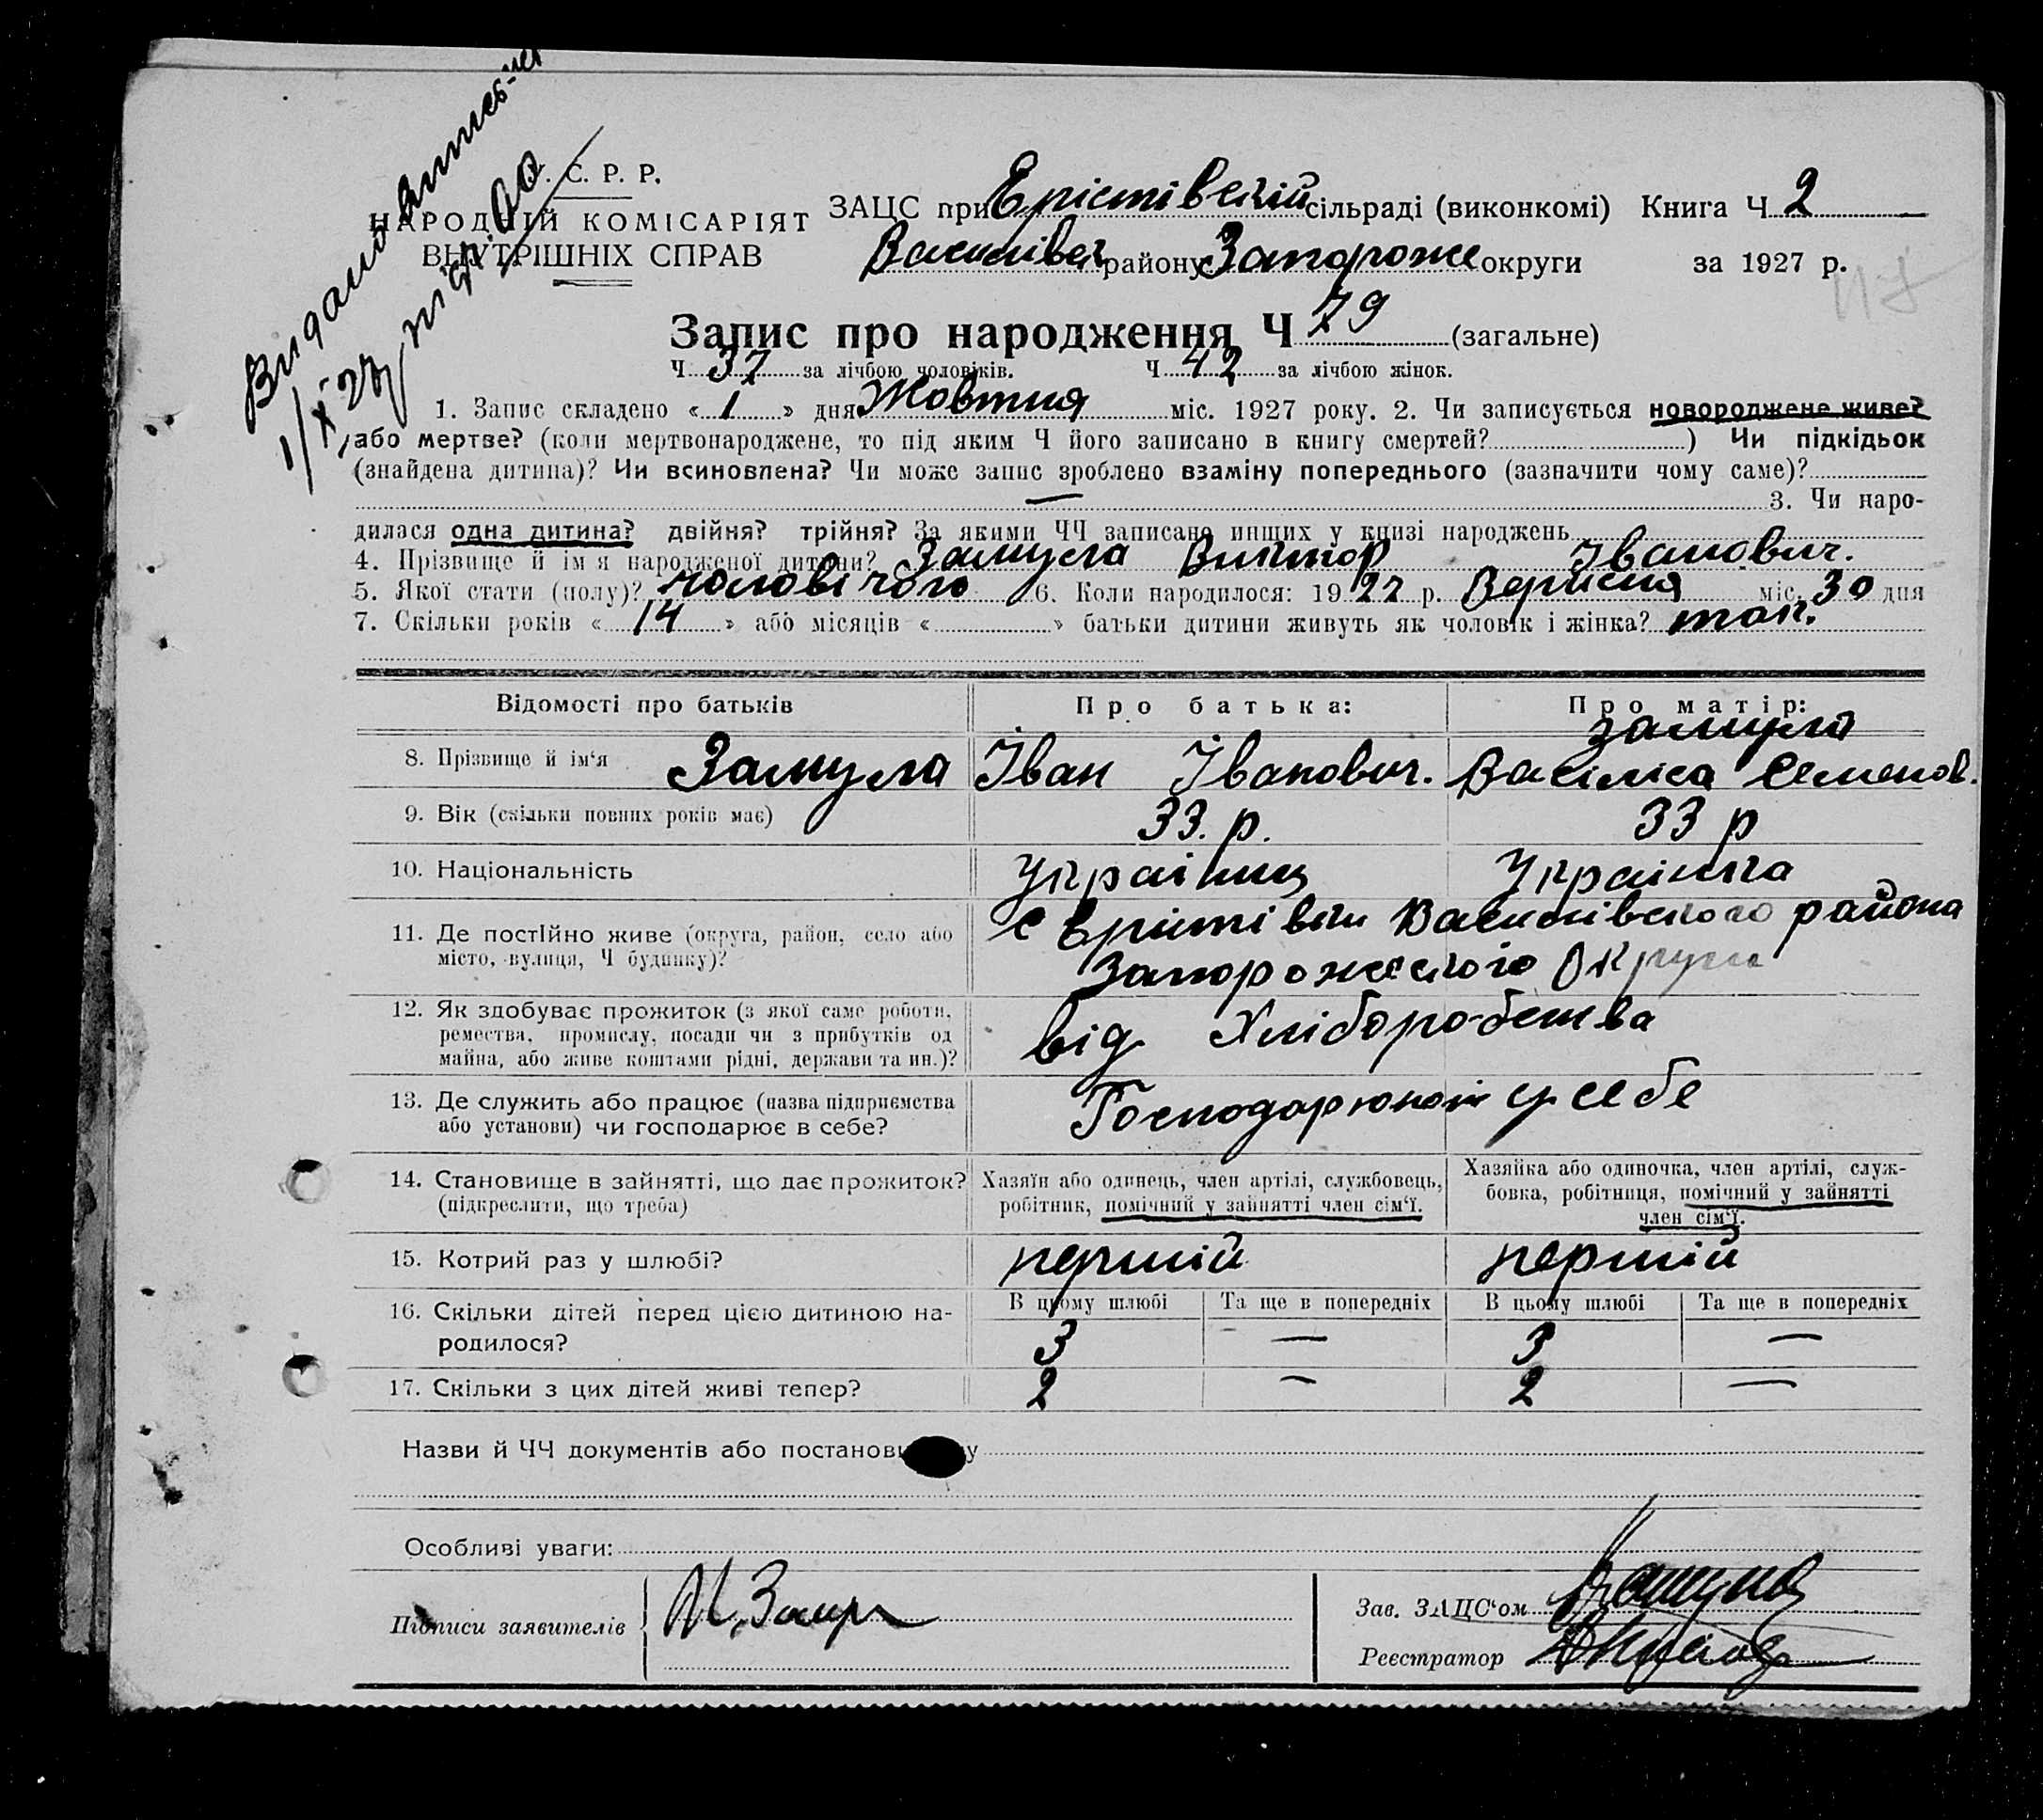 Видано виписъ
1/X 27, під №
У. С. Р. Р.
НАРОДНІЙ КОМІСАРІЯТ
ВНУТРІШНІХ СПРАВ
ЗАЦС при Ерістівській сільраді (виконкомі) Книга Ч 2
Василівськ району Запорожс округи за 1927 р.
Запис про народження Ч 79 (загальне)
Ч 37 за лічбою чоловіків. Ч 42 за лічбою жінок.
1. Запис складено « 1 » дня Жовтня міс. 1927 року. 2. Чи записується новороджене живе?
або мертве? (коли мертвонароджене, то під яким Ч його записано в книгу смертей? ) Чи підкідьок
(знайдена дитина)? Чи всиновлена? Чи може запис зроблено взаміну попереднього (зазначити чому саме)?
— 3. Чи наро-
дилася одна дитина? двійня? трійня? За якими ЧЧ записано инших у книзі народжень
4. Прізвище й ім'я народженої дитини? Замула Віктор Іванович.
5. Якої стати (полу)? чоловічого 6. Коли народилося: 1927 р. Вересня міс. 30 дня
7. Скільки років « 14 » або місяців « » батьки дитини живуть як чоловік і жінка? так.
Відомості про батьків Про батька: Про матір:
8. Прізвище й ім'я Замула Іван Іванович. Замула Васіліса Семенов.
9. Вік (скільки повних років має) 33. р. 33 р
10. Національність Українец Українка
11. Де постійно живе (округа, район, село або
місто, вулиця, Ч будинку)?
с Ерістівки Василівского района
Запорожского Округи
12. Як здобуває прожиток (з якої саме роботи,
ремества, промислу, посади чи з прибутків од
майна, або живе коштами рідні, держави та ин.)?
від Хліборобства
13. Де служить або працює (назва підприємства
або установи) чи господарює в себе?
у себе
14. Становище в зайнятті, що дає прожиток?
(підкреслити, що треба)
Хазяїн або одинець, член артілі, службовець,
робітник, помічний у зайнятті член сім'ї.
Хазяйка або одиночка, член артілі, служ-
бовка, робітниця, помічний у зайнятті
член сім'ї.
15. Котрий раз у шлюбі? первій первій
16. Скільки дітей перед цією дитиною на-
родилося?
В цьому шлюбі Та ще в попередніх В цьому шлюбі Та ще в попередніх
3 — 3 —
17. Скільки з цих дітей живі тепер? 2 — 2 —
Назви й ЧЧ документів або постанови у
Особливі уваги:
Підписи заявителів
Зав. ЗАЦС'ом
Реєстратор